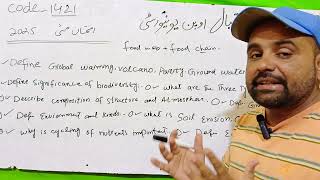 Code 1421
2025 امتحان مئی
پال اوپن یونیورسٹی
food web + food chain.
Define Global warming, volcano, Poverty, Ground water
Define significance of biodiversity. O what are the Three Ty
Describe composition of structure and Atmosphere. O Def
Defin Enviornment and kinds. O what is Soil Erosion
O why is cycling of nutrients important O Defin E